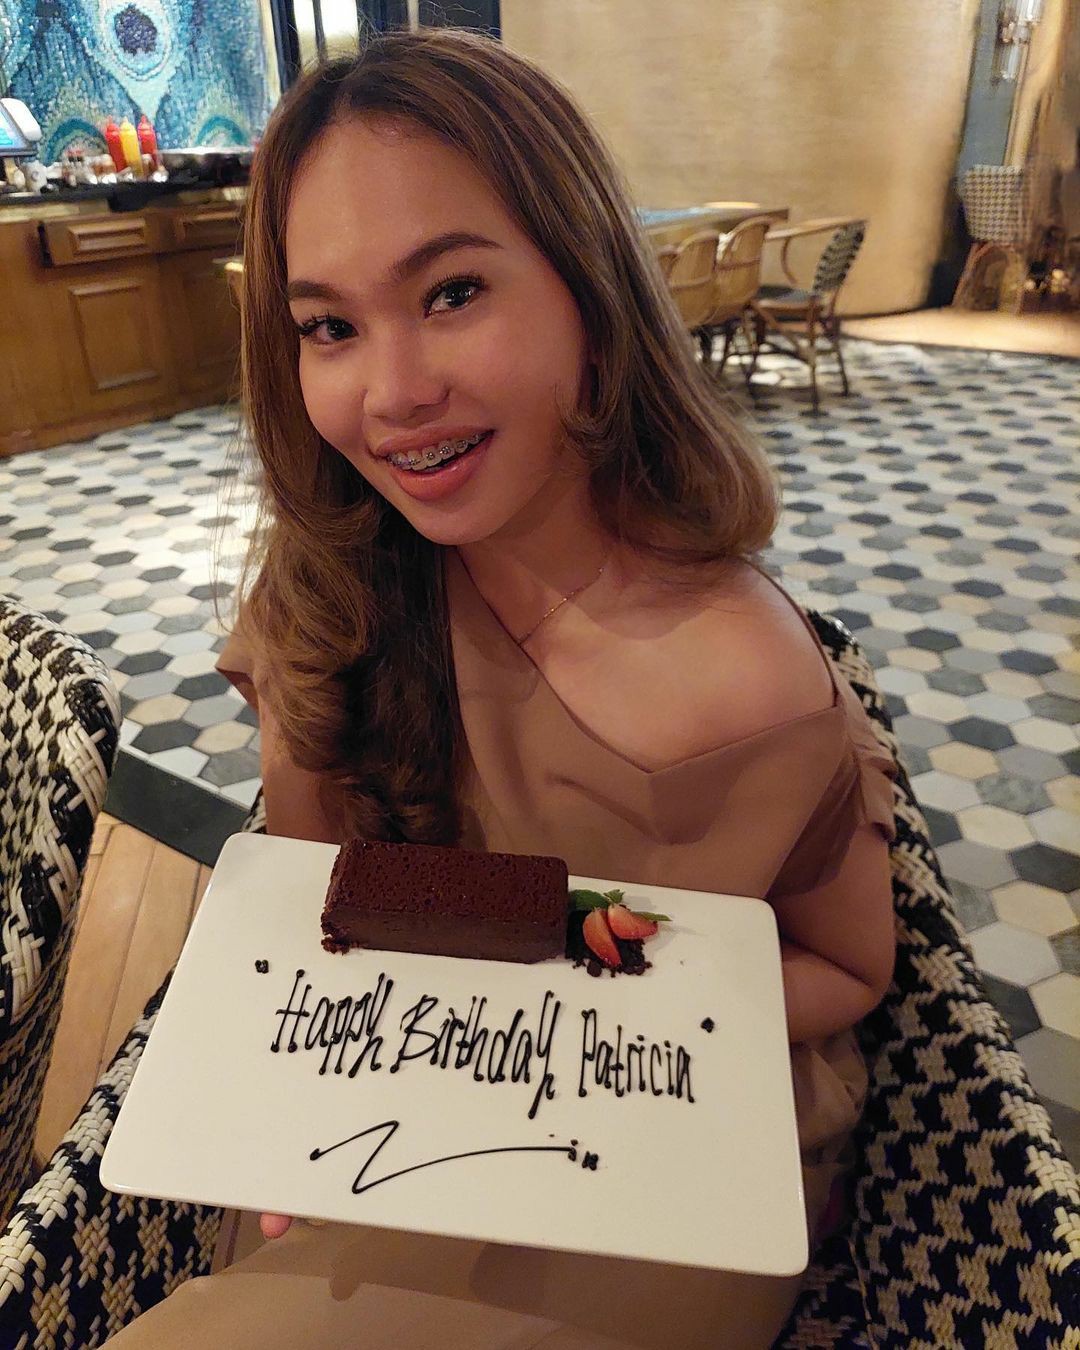 "Happy Birthday Patricia"